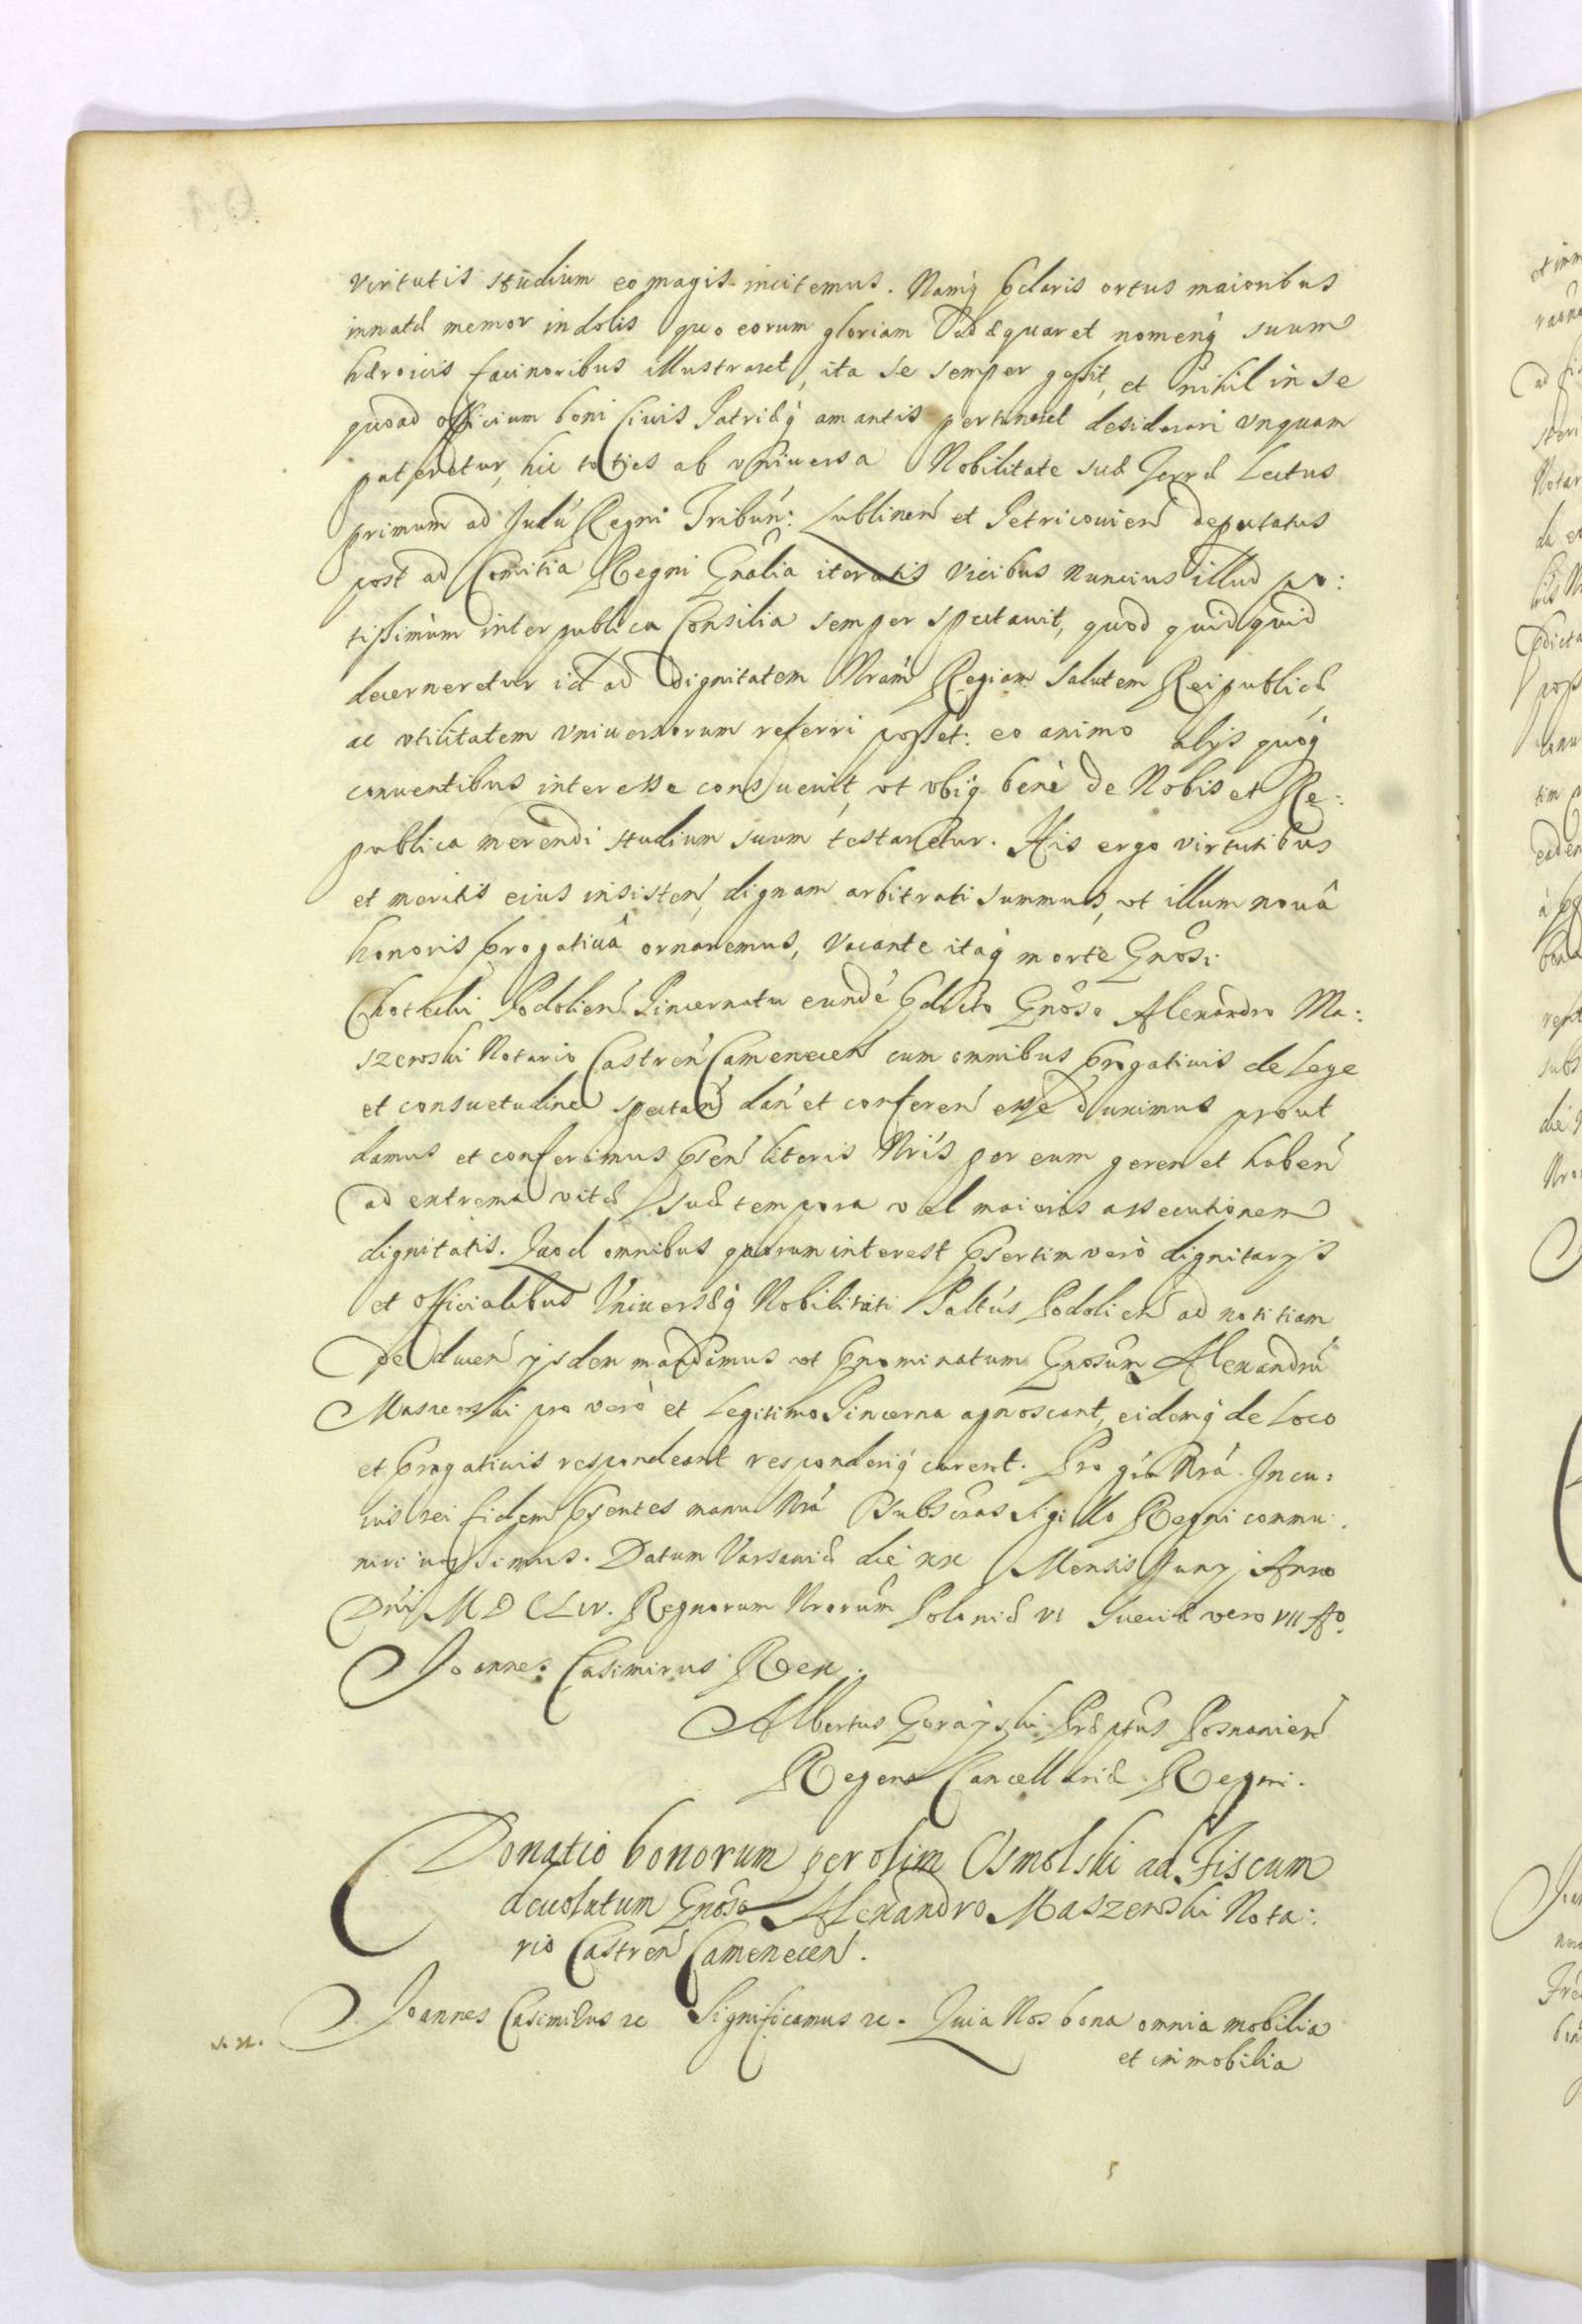 virtutis studium eo magis incitemus. Namq́ p̃claris ortus maioribus
innatæ memor indolis quo eorum gloriam adæquaret nomenq́ suum
hæroicis facinoribus illustraret, ita se semper gessit, et nihil in se
quoad officium boni Ciuis Patriæq́ amantis pertineret desiderari vnquam
pateretur, hic toties ab vniuersa Nobilitate suæ Terræ Lectus
primum ad Judú Regni Tribuń: Lublineń et Petricouień deputatus
post ad Comitia Regni Gnãlia iteratis vicibus nuncius illud po:
tissimùm inter publica Consilia semper spectauit, quod quidquid
decerneretur id ad dignitatem Nrám Regiam salutem Reipublicæ,
ac vtilitatem vniuersorum referri posset: eo animo alijs quoq́
conuentibus interesse consueuit, vt vbiq́ benè de Nobis et Re:
publica merendi studium suum testaretur. His ergo virtutibus
et meritis eius insisteń, dignam arbitrati summus, vt illum nouâ
honoris p̃rogatiuâ ornaremus, vacante itaq́ morte Gnõsi
Podolień Pincernatu eundé p̃dicto Gnõso Alexandro Ma:
szewski Notario Castreń Cameneceń cum omnibus p̃rogatiuis de Lege
et consuetudine spectań dań et confereń esse duximus prout
damus et conferimus p̃seń literis Nrís per eum gereń et habeń
ad extrema vitæ suæ tempora vel maioris assecutionem
dignitatis. Quod omnibus quorum interest p̃sertim verò dignitarijs
et officialibus Vniuersæq́ Nobilitati Paltús Podolień ad notitiam
deduceń ijsdem mandamus vt p̃nominatum Gnosũm Alexandrú
Maszewski pro verò et Legitimo Pincerna agnoscant, eidemq́ de Loco
et p̃rogatiuis respondeant responderiq́ curent. Pro gŕa Nrá. In cu:
ius rei fidem p̃sentes manu Nrá subscr̃as sigillo Regni commu:
niri iussimus. Datum Varsauiæ die xx Mensis Junij Anno
Dńi M D C LIV. Regnorum Nrorũm Poloniæ VI Sueciæ vero VII Aº.
Joannes Casimirus Rex.
Albertus Gorajski Præptũs Posnanień
Regens Cancellariæ Regni.
Donatio bonorum per olim Osmolski ad Fiscum
deuolutum Gnõso Alexandro Maszewski Nota:
rio Castreń Cameneceń.
Joannes Casimirus &c Significamus &c. Quia Nos bona omnia mobilia
et inmobilia